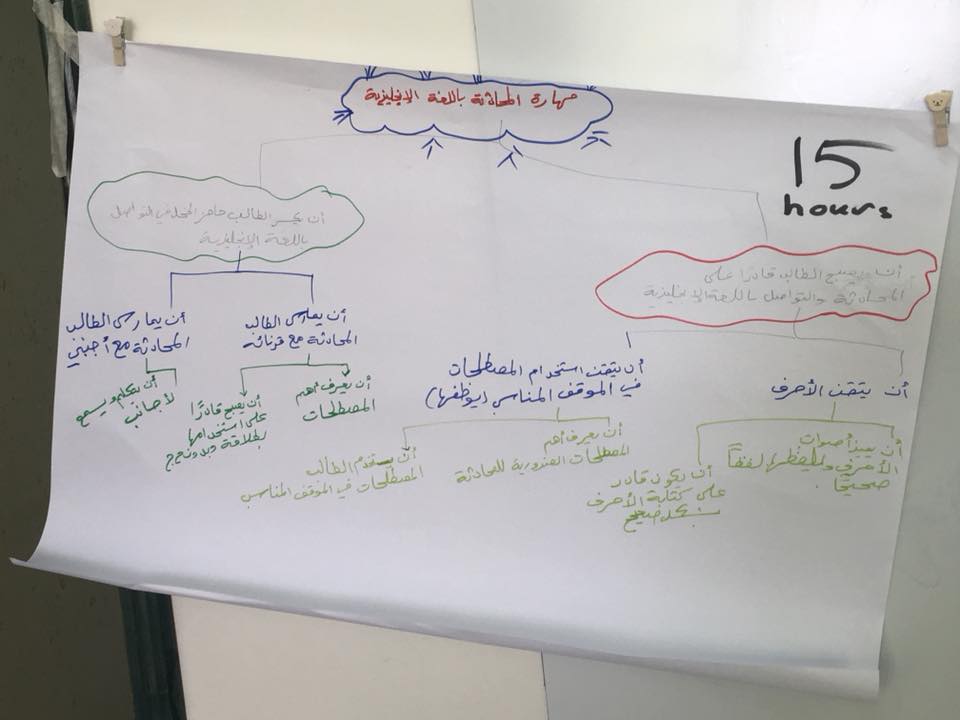 مهارة المحادثة باللغة الإنجليزية
15
hours
أن يصبح الطالب قادرًا على
المحادثة والتواصل باللغة الإنجليزية
أن يكسر الطالب حاجز الخجل في التواصل
باللغة الإنجليزية
أن يتقن الأحرف
أن يتقن استخدام المصطلحات
في الموقف المناسب (يوظفها)
أن يمارس الطالب
المحادثة مع قرنائه
أن يمارس الطالب
المحادثة مع أجنبي
أن يميز أصوات
الأحرف ويلفظها لفظاً
صحيحًا
أن يكون قادر
على كتابة الأحرف
بشكل صحيح
أن يعرف أهم
المصطلحات الضرورية للمحادثة
أن يستخدم الطالب
المصطلحات في الموقف المناسب
أن يعرف أهم
المصطلحات
أن يصبح قادرًا
على استخدامها
بطلاقة وبدون حرج
أن يتكلم ويسمع
لأجانب